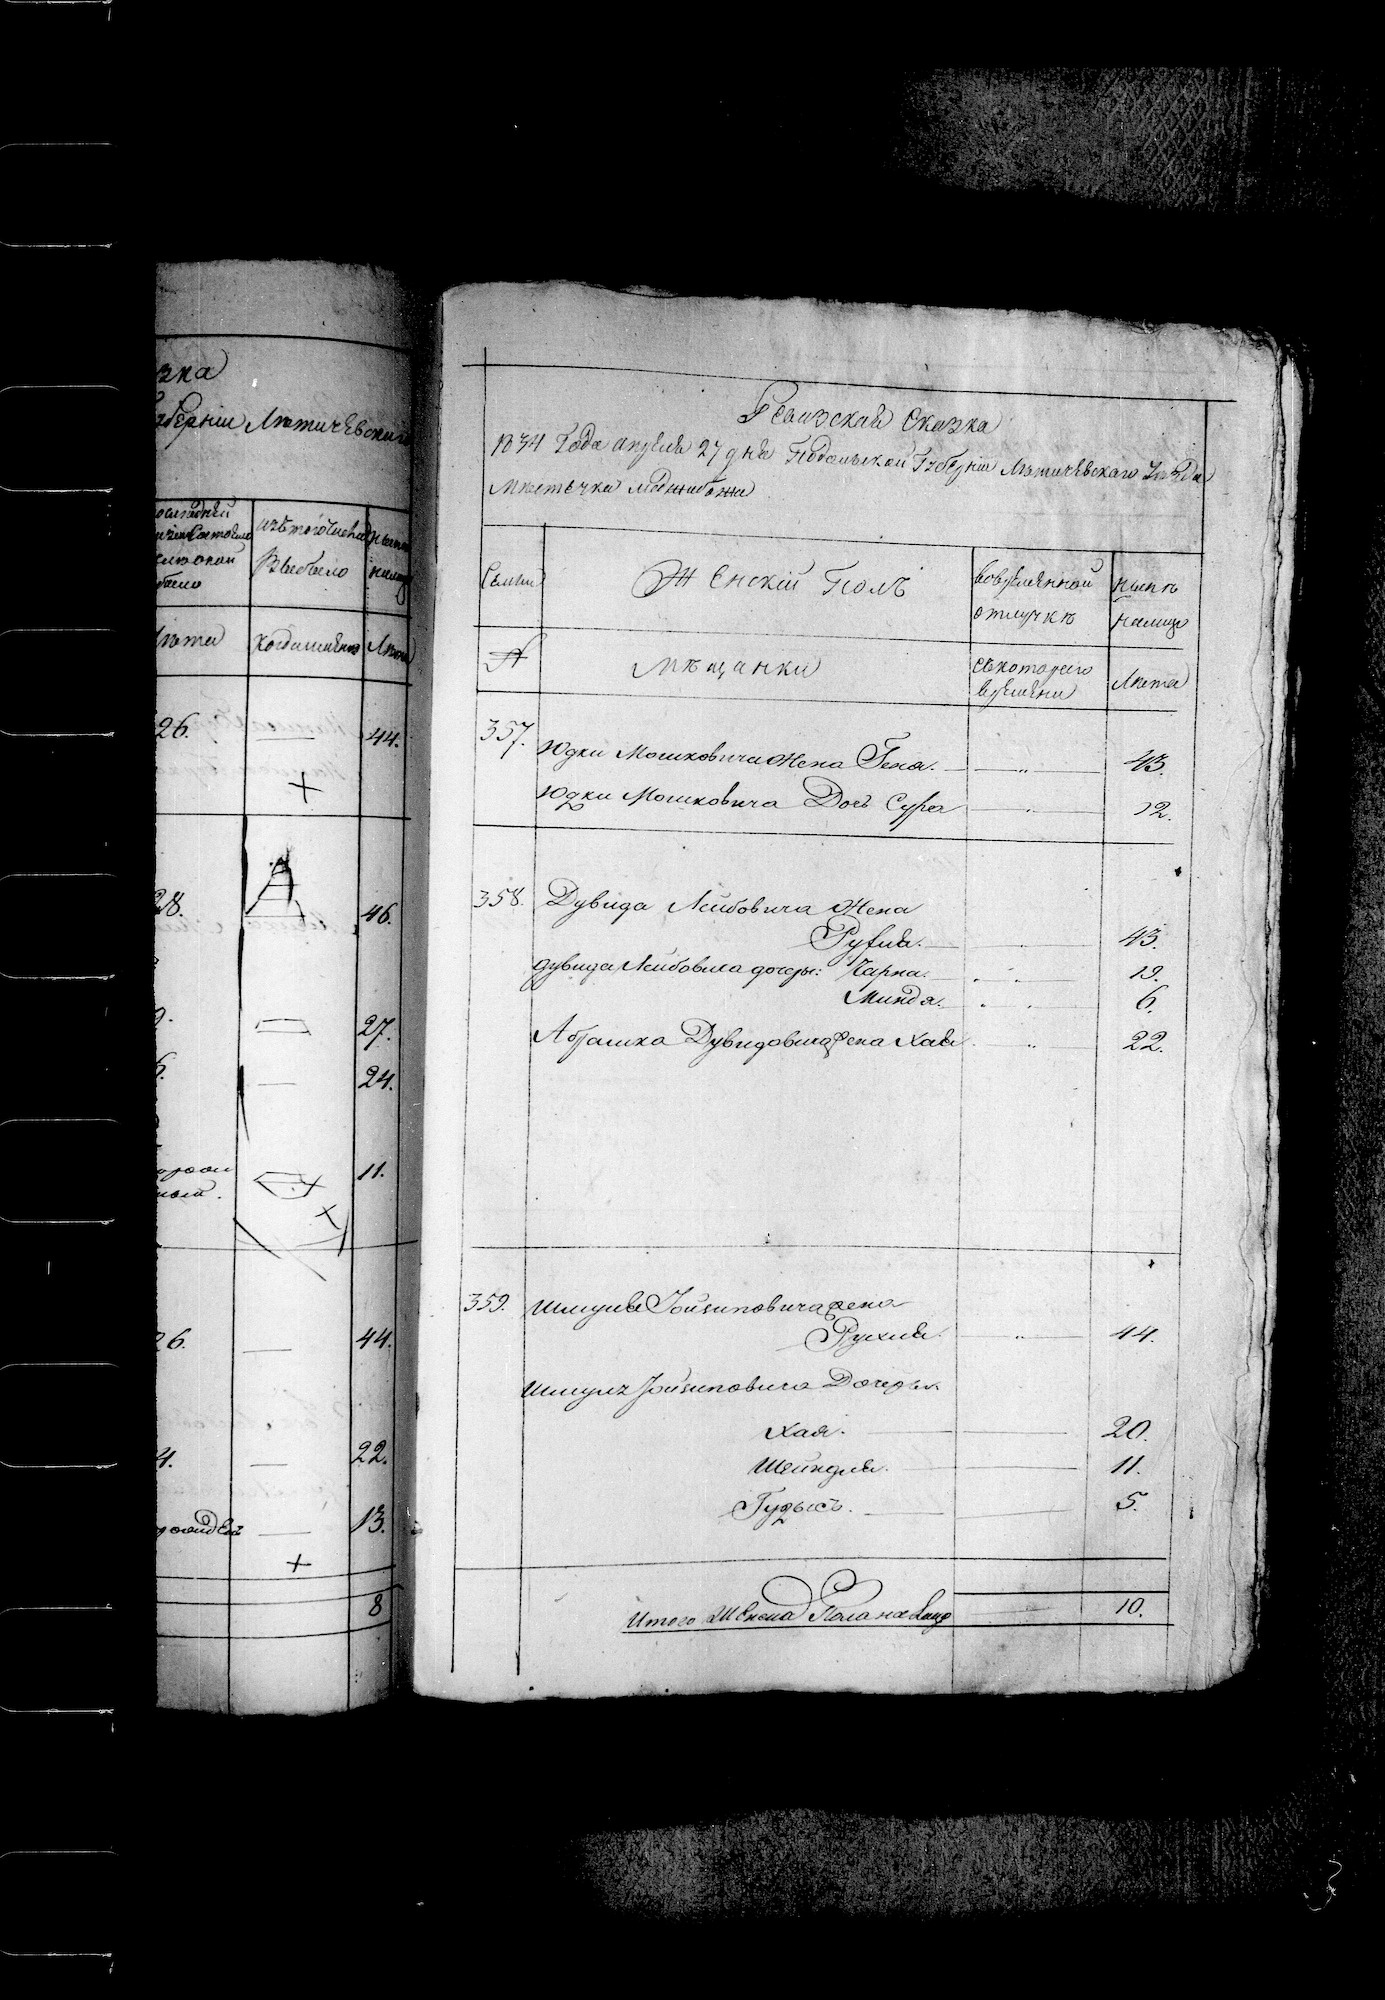 зка
Губерніи Лѣтичевскаго
изъ того числа
Выбыло
Лѣта
когда именно
Лѣта
26.
44.
28.
46.
27.
24.
11.
26.
44.
4.
22.
13.
8
Ревизская Сказка
1834 Года апреля 27 дня Подольской Губерніи Лѣтичевскаго Уѣзда
Мѣстечка Меджибожа
Семьи
Женскій Полъ
вовременной
отлучкѣ
нынѣ
налицо
№
Мѣщанки
съкотораго
времени
Лѣта
357.
Юдки Мошковича Жена Гена. 43.
Юдки Мошковича Дочь Сура 12.
358.
Дувида Лейбовича Жена
Рухля. 43.
дувида Лейбовича дочеры: Чарна. 19.
Минда. 6.
Абрамка Дувидовича жена Хая 22.
359.
Шмуля Іойзиповича жена
Рухля. 44.
Шмуля Іойзиповича Дочеры.
Хая. 20.
Шейндля. 11.
5.
Итого Женска Пола на Лицо 10.